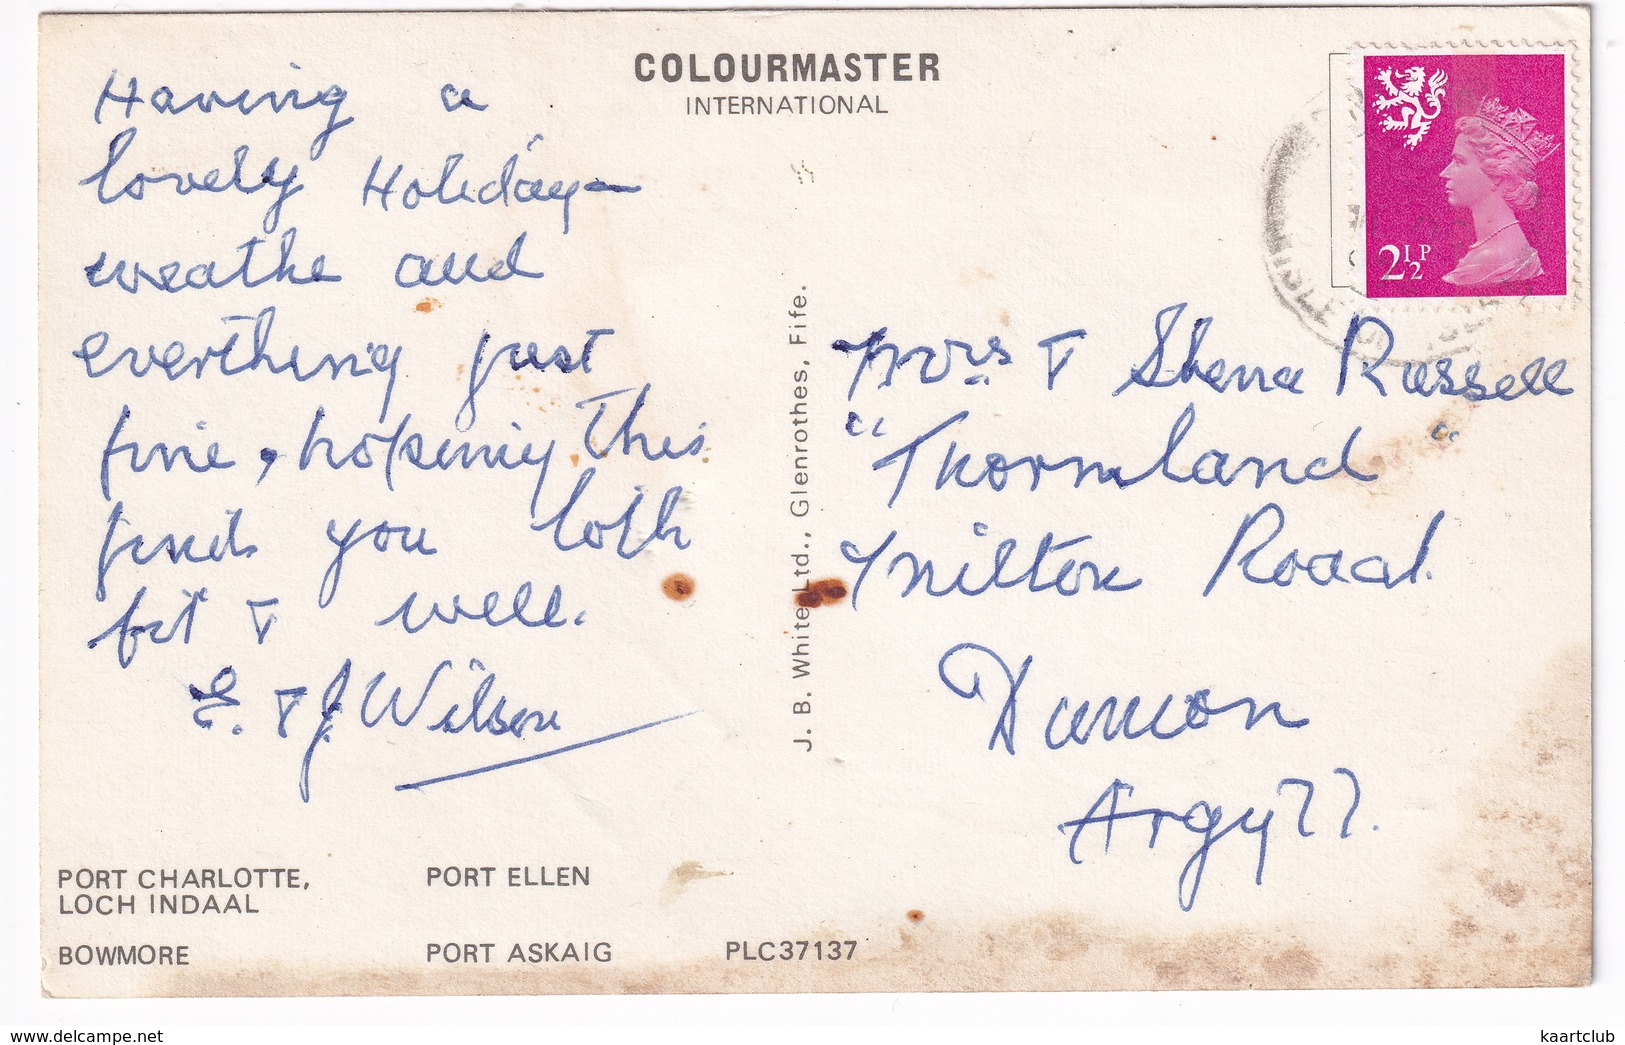 COLOURMASTER
INTERNATIONAL
Having a
lovely Holiday -
weathe and
everthing just
fine, hopeing this
finds you both
fit & well.
E. & J. Wilson
2½P
Mrs & Shena Russell
"Thornland"
Milton Road.
Dunoon
Argyll.
J. B. White Ltd., Glenrothes, Fife.
PORT CHARLOTTE,
LOCH INDAAL
PORT ELLEN
BOWMORE
PORT ASKAIG
PLC37137
delcampe.net
kaartclub